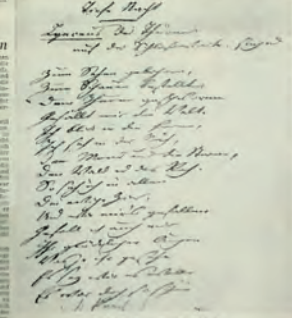 Tiefe Nacht
Lynceus der Thürmer
auf der Schloßwarte. singend
Zum Sehen geboren,
Zum Schauen bestellt,
Dem Thurme geschworen
Gefällt mir die Welt.
Ich blick in die Ferne,
Ich seh in der Näh,
Den Mond und die Sterne,
Den Wald und das Reh.
So seh ich in allen
Die ewige Zier,
Und wie mirs gefallen
Gefall ich auch mir
Ihr glücklichen Augen
Was je ihr gesehn
Es sey wie es wolle
Es war doch so schön